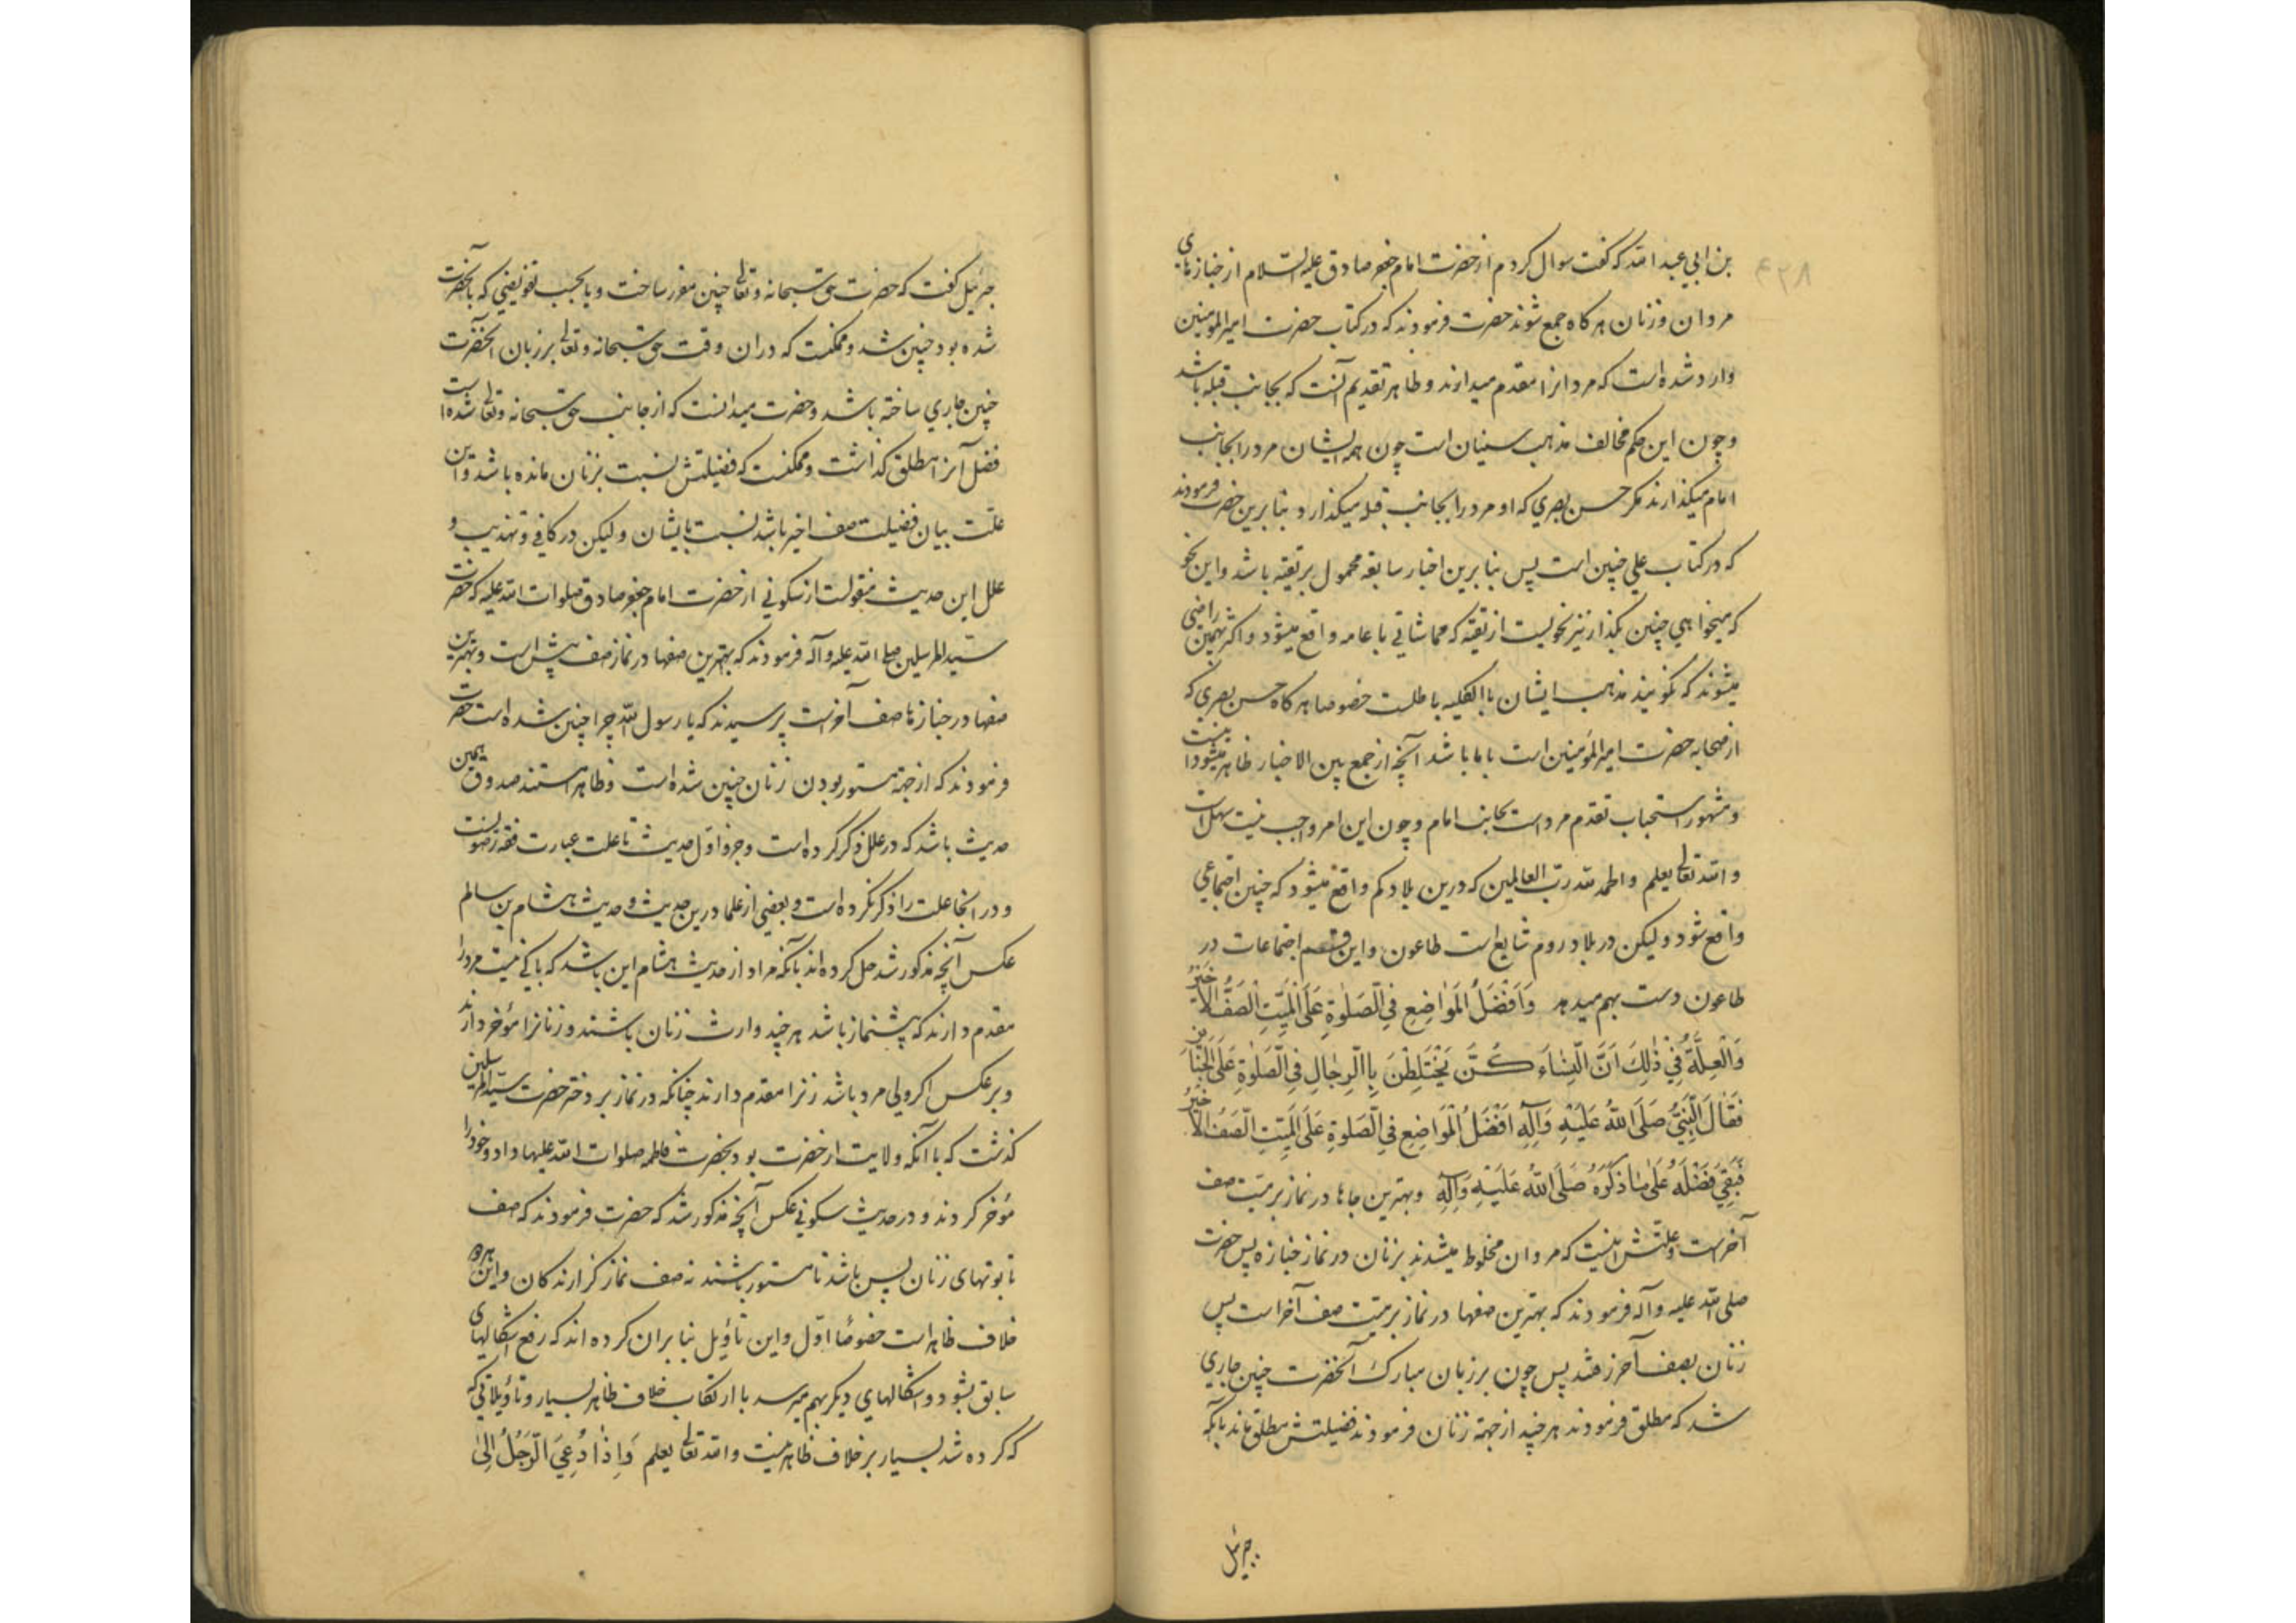 بن ابي عبد الله که گفت سوال کردم از حضرت امام جعفر صادق عليه السلام از جنازهای
مردان و زنان هرکاه جمع شوند حضرت فرمودند که در کتاب حضرت امير المؤمنين
وارد شده است که مردانرا مقدم ميدارند و ظاهر تقديم آنست که بجانب قبله باشد
و چون اين حکم مخالف مذهب سنيان است چون همه ايشان مرد را بجانب
امام ميکذارند مکر حسن بصري که او مرد را بجانب قبله ميکذارد بنابرين حضرت فرمودند
که در کتاب علي چنين است پس بنابرين اخبار سابقه محمول بر تقيه باشد و اين نحو
که ميخواهي چنين بکذار نيز نحويست از تقيه که مماشاتي با عامه واقع ميشود و اکثر بهمين راضي
ميشوند که نکويند مذهب ايشان باالکليه باطلست خصوصا هرکاه حسن بصري که
از صحابه حضرت امير المؤمنين است با ما باشد آنچه از جمع بين الاخبار ظاهر ميشود اينست
و مشهور استحباب تقدم مرد است بجانب امام و چون اين امر واجب نيست سهل است
و الله تعالی يعلم والحمد لله رب العالمين که درين بلاد کم واقع ميشود که چنين اجتماعي
واقع شود وليکن در بلاد روم شايع است طاعون و اين قسم اجتماعات در
طاعون دست بهم ميدهد وَاَفْضَلُ المَوَاضِعِ فِي الصَّلوٰةِ عَلَی الْمَيِّتِ الْصَفُّ الاَخِيْرُ
وَالْعِلَّةُ فِيْ ذٰلِكَ اَنَّ الْنِسَاءَ كُنَّ يَخْتَلِطْنَ بِاالرِجَالِ فِي الصَّلوٰةِ عَلَی الْجَنَائِزِ
فَقَالَ النَّبِيُّ صَلَّی اللهُ عَلَيْهِ وَآلِهِ اَفْضَلُ الْمَوَاضِعِ فِي الصَّلوٰةِ عَلَی الْمَيِّتِ الصَّفُ الاَخِيْرُ
فَبَقِيَ فَضْلَهُ عَلَی مَا ذَكَرَهُ صَلَّی اللهُ عَلَيْهِ وَآلِهِ و بهترين جاها در نماز بر ميت صف
آخرست و علتش اينست که مردان مخلوط ميشدند بزنان در نماز جنازه پس حضرت
صلی الله عليه وآله فرمودند که بهترين صفها در نماز بر ميت صف آخر است پس
زنان بصف آخر رفتند پس چون بر زبان مبارك آنحضرت چنين جاري
شد که مطلق فرمودند هرچند از جهة زنان فرمودند فضيلتش مطلق ماند بآنکه
جبرئيل
جبرئيل گفت که حضرت حق سبحانه و تعالی چنين مقرر ساخت و يا بحسب تفويضي که بآنحضرت
شده بود چنين شد و ممکنست که دران وقت حق سبحانه و تعالی بر زبان آنحضرت
چنين جاري ساخته باشد و حضرت ميدانست که از جانب حق سبحانه و تعالی شده است
فضل آنرا مطلق گذاشت و ممکنست که فضيلتش نسبت بزنان مانده باشد و اين
علّت بيان فضيلت صف اخير باشد نسبت بايشان و ليکن در کافي و تهذيب و
علل اين حديث منقولست از سکوني از حضرت امام جعفر صادق صلوات الله عليه که حضرت
سيد المرسلين صلی الله عليه وآله فرمودند که بهترين صفها در نماز صف پيش است و بهترين
صفها در جنازها صف آخرست پرسيدند که يا رسول الله چرا چنين شده است حضرت
فرمودند که از جهة مستور بودن زنان چنين شده است و ظاهرا مستند صدوق همين
حديث باشد که در علل ذکر کرده است و جزو اوّل حديث تا علت عبارت فقه رضويست
و در آنجا علت را ذکر نکرده است و بعضي از علما درين حديث و حديث هشام بن سالم
عکس آنچه مذکور شد حمل کرده اند بآنکه مراد از حديث هشام اين باشد که باکي نيست مرد را
مقدم دارند که پيشنماز باشد هرچند وارث زنان باشند و زنانرا مؤخر دارند
و برعکس اکر ولي مرد باشد زنرا مقدم دارند چنانکه در نماز بر دختر حضرت سيد المرسلين
کذشت که با آنکه ولايت از حضرت بود بحضرت فاطمه صلوات الله عليها داد و خود را
مؤخر کردند و در حديث سکوني عکس آنچه مذکور شد که حضرت فرمودند که صف
تابوتهای زنان پس باشد تا مستور باشند نه صف نماز کزارندکان و اين هردو
خلاف ظاهر است خصوصًا اوّل و اين تأويل بنا بران کرده اند که رفع اشکالهای
سابق بشود و اشکالهاي ديکر بهم ميرسد با ارتکاب خلاف ظاهر بسيار و تأويلاتي که
که کرده شد بسيار بر خلاف ظاهر نيست و الله تعالی يعلم وَاِذٰا دُعِيَ الرَّجُلُ اِلیٰ